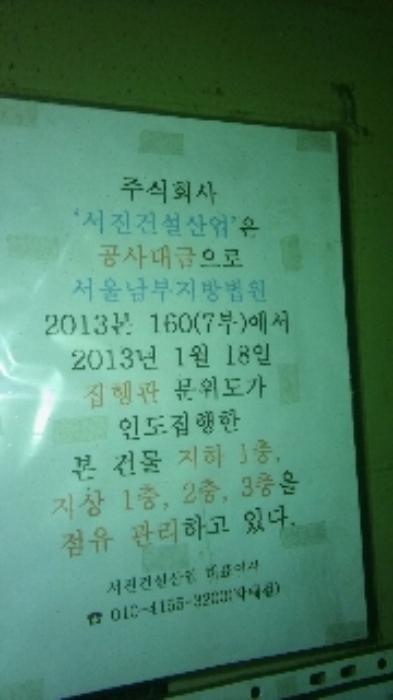 주식회사
'서진건설산업'은
공사대금으로
서울남부지방법원
2013본 160(7부)에서
2013년 1월 18일
집행관 문위도가
인도집행한
본 건물 지하 1층,
지상 1층, 2층, 3층을
점유 관리하고 있다.
서진건설산업 대표이사
☎